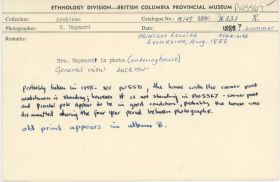 ETHNOLOGY DIVISION—BRITISH COLUMBIA PROVINCIAL MUSEUM PN5567
Location: Arobinns Catalogue No.: X231 X
Photographer: R. Maynard Date: 1888? summer
Remarks: PRINCESS LOUISE
EXCURSION, Aug. 1888
Mrs. Maynard in photo (entering house)
General view
Probably taken in 1888 - see PN5571, the house with the corner post
watchman is standing; however it is not standing in PN5567 - corner post
and frontal pole appear to be in good condition; probably the house was
dismantled during the four year period between photographs.
old print appears in album B.